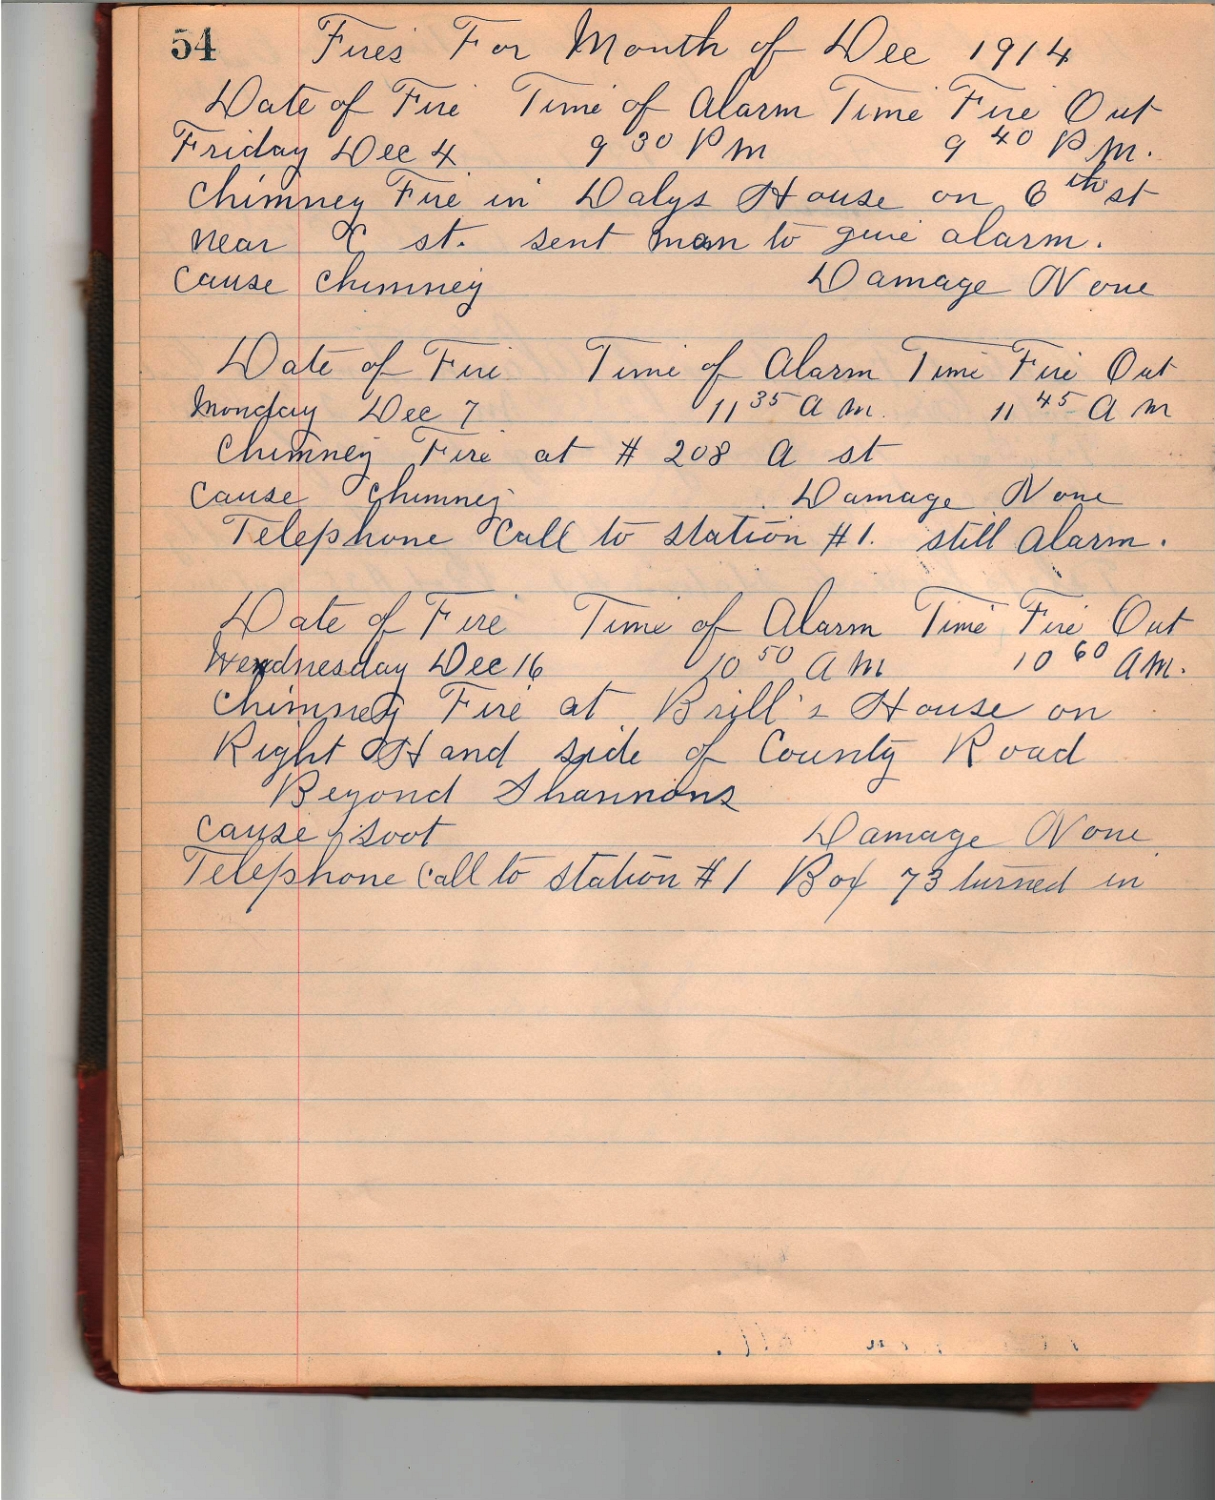 54 Fires For Month of Dec 1914
Date of Fire Time of Alarm Time Fire Out
Friday Dec 4 9 30 P M 9 40 P M.
Chimney Fire in Dalys House on 6th st
near C st. sent man to give alarm.
Cause Chimney Damage None
Date of Fire Time of Alarm Time Fire Out
Monday Dec 7 11 35 A M. 11 45 A M
Chimney Fire at # 208 A st
Cause Chimney Damage None
Telephone Call to station #1. still Alarm.
Date of Fire Time of Alarm Time Fire Out
Wendnesday Dec 16 10 50 A M 10 60 A M.
Chimney Fire at Brill's House on
Right Hand side of County Road
Beyond Shannons
Cause soot Damage None
Telephone Call to station #1 Box 73 turned in